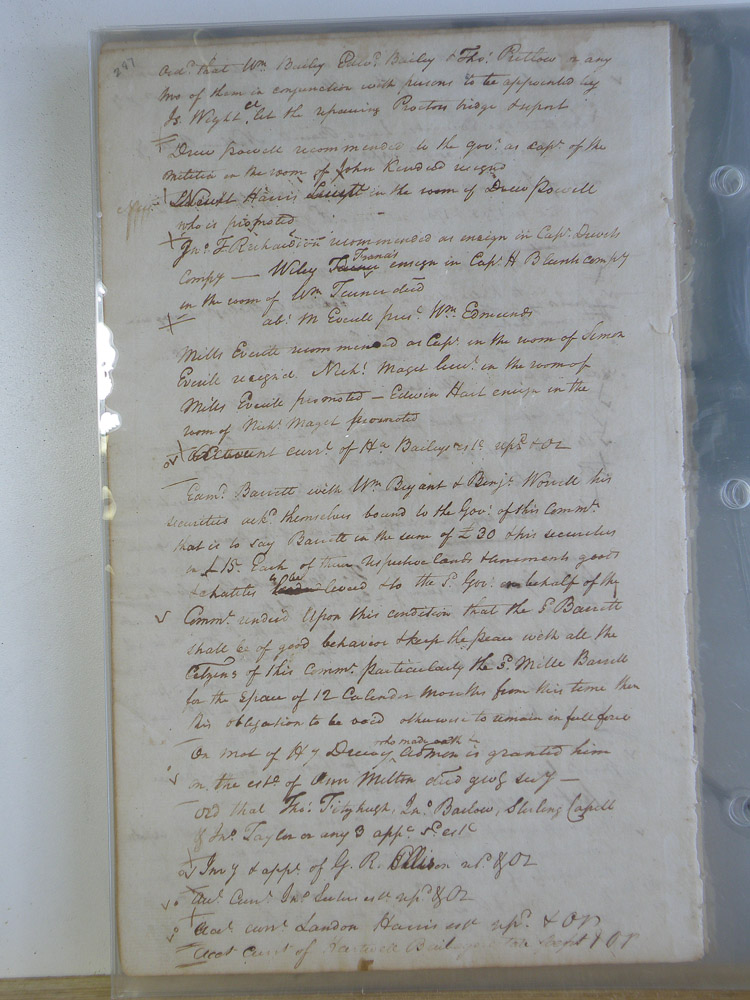 297
Ord.d that Wm Bailey Edw.d Bailey & Tho.s Pretlow or any
two of them in conjunction with persons to be appointed by
Is. Wight Ct. let the repairing Proctors bridge & report
Drew Powell recommended to the gov.r as Capt. of the
militia in the room of John Kindred resignd
Newit Harris Lieut in the room of Drew Powell
who is promoted
Jn.o F Richardson recommended as ensign in Capt. Drews
Compy — Wiley Francis ensign in Capt. H Blunts compy
in the room of Wm Turner decd
abs.t M Everitt pres.t Wm Edmunds
Mills Everitt recommended as Capt. in the room of Simon
Everitt resignd Nich.s Maget Lieut. in the room of
Mills Everitt promoted — Edwin Hart ensign in the
room of Nich.s Maget promoted
Account curr.t of Ha Baileys est. rep.d & OR
Barrett with Wm Bryant & Benj.n Worrell his
securities ack.d themselves bound to the Gov.r of this Commw.
that is to say Barrett in the sum of £30 & his securities
in £15 Each of their respective lands & tenements goods
& chattles to be levied & to the s.d Gov.r on behalf of the
Commw. rendered Upon this condition that the s.d Barrett
shall be of good behavior & keep the peace with all the
Citizens of this Commw. particularly the s.d Mills Barrett
for the space of 12 Calender Months from this time then
this obligation to be void otherwise to remain in full force
On mot of Hy Drewry who made oath admon is granted him
on the est. of Ann Milton decd givg secy —
ord that Tho.s Fitzhugh, Jn.o Barlow, Sterling Capell
& Jn.o Taylor or any 3 app.e s.d est.
Inv.y & app.t of G. R. Ellison ret.d & OR
Act. Curr.t Jn.o est. rep.d & OR
Act. curr.t Landon Harris est rep.d & OR
Acct Currt of Bailey &OR